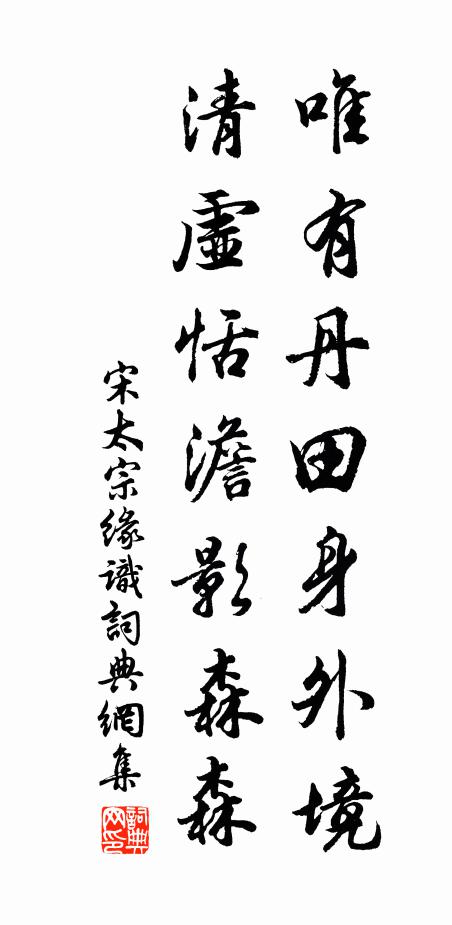 唯有丹田身外境
清虛恬澹影森森
宋太宗緣識詞典網集
詞典网印